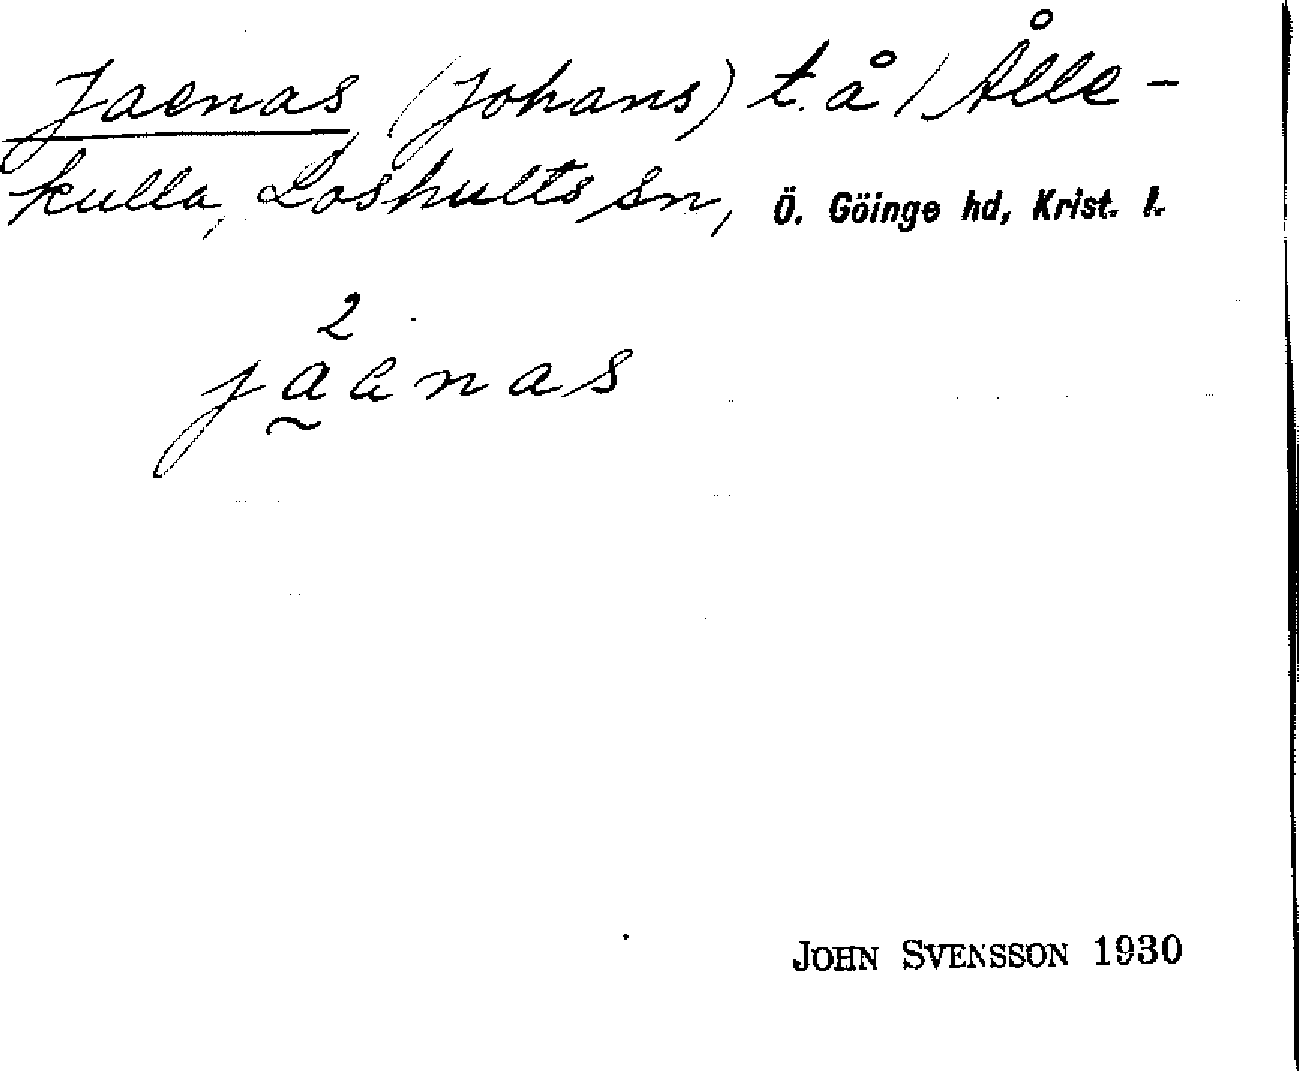 Jaenas (Johans) t. å / Ålle-
kulla, Loshults sn, Ö. Göinge hd, Krist. l.
2
jaenas
JOHN SVENSSON 1930